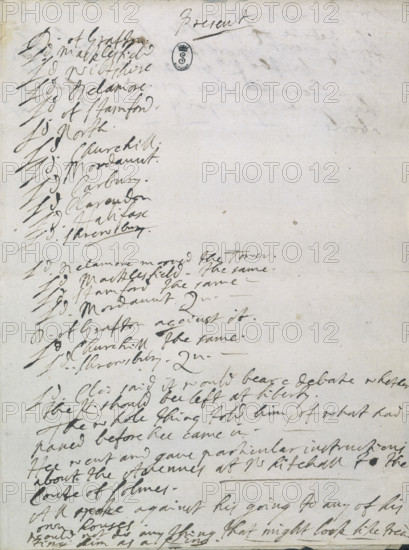 Present
D. of Grafton
Ld Macklesfeild
Ld Wiltshire
Ld Delamore
Ld of Stamford.
Ld North.
Ld Churchill
Ld Mordaunt.
Ld Carbury.
Ld Clarendon
Ld Halifax
Ld Shrewsbury.
Ld Delamore moved the Tower.
Ld Macklesfeild - the same.
Ld Stamford the same -
Ld Mordaunt Qu -
D of Grafton against it.
Ld Churchill the same.
Ld Shrewsbury. Qu -
Ld said it would beare debate whether
the K should bee left at liberty.
the whole thing told him of what had
passed before hee came in.
Hee went and gave particular instructions
about the Avennues at Whitehall to the
Conte of Solmes.
All spoke against his going to any of his
own houses.
would not do anything that might look like trea
ting him as a
PHOTO 12